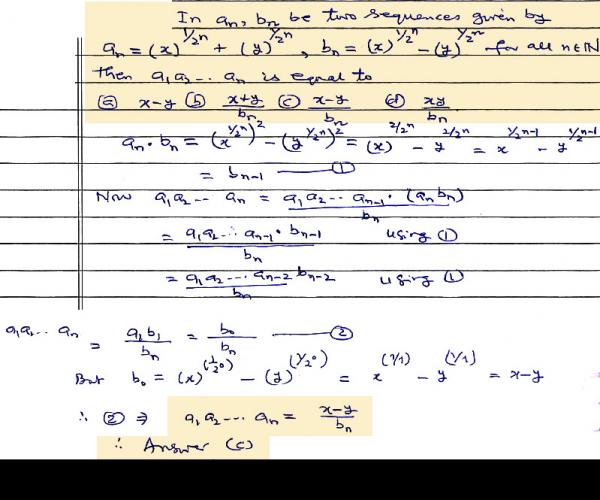 In an, bn be two sequences given by
an = (x)^1/2^n + (y)^1/2^n, bn = (x)^1/2^n - (y)^1/2^n for all n∈N
then a1a2... an is equal to
(a) x-y (b) x+y/bn (c) x-y/bn (d) xy/bn
an·bn = (x^1/2^n)^2 - (y^1/2^n)^2 = (x)^2/2^n - y^2/2^n = x^1/2^n-1 - y^1/2^n-1
= bn-1 — (1)
Now a1a2... an = a1a2... an-1·(anbn)/bn
= a1a2... an-1·bn-1/bn using (1)
= a1a2... an-2bn-2/bn using (1)
a1a2... an = a1b1/bn = b0/bn — (2)
But b0 = (x)^(1/2^0) - (y)^(1/2^0) = x^(1/1) - y^(1/1) = x-y
∴ (2) ⇒ a1a2... an = x-y/bn
∴ Answer (c)